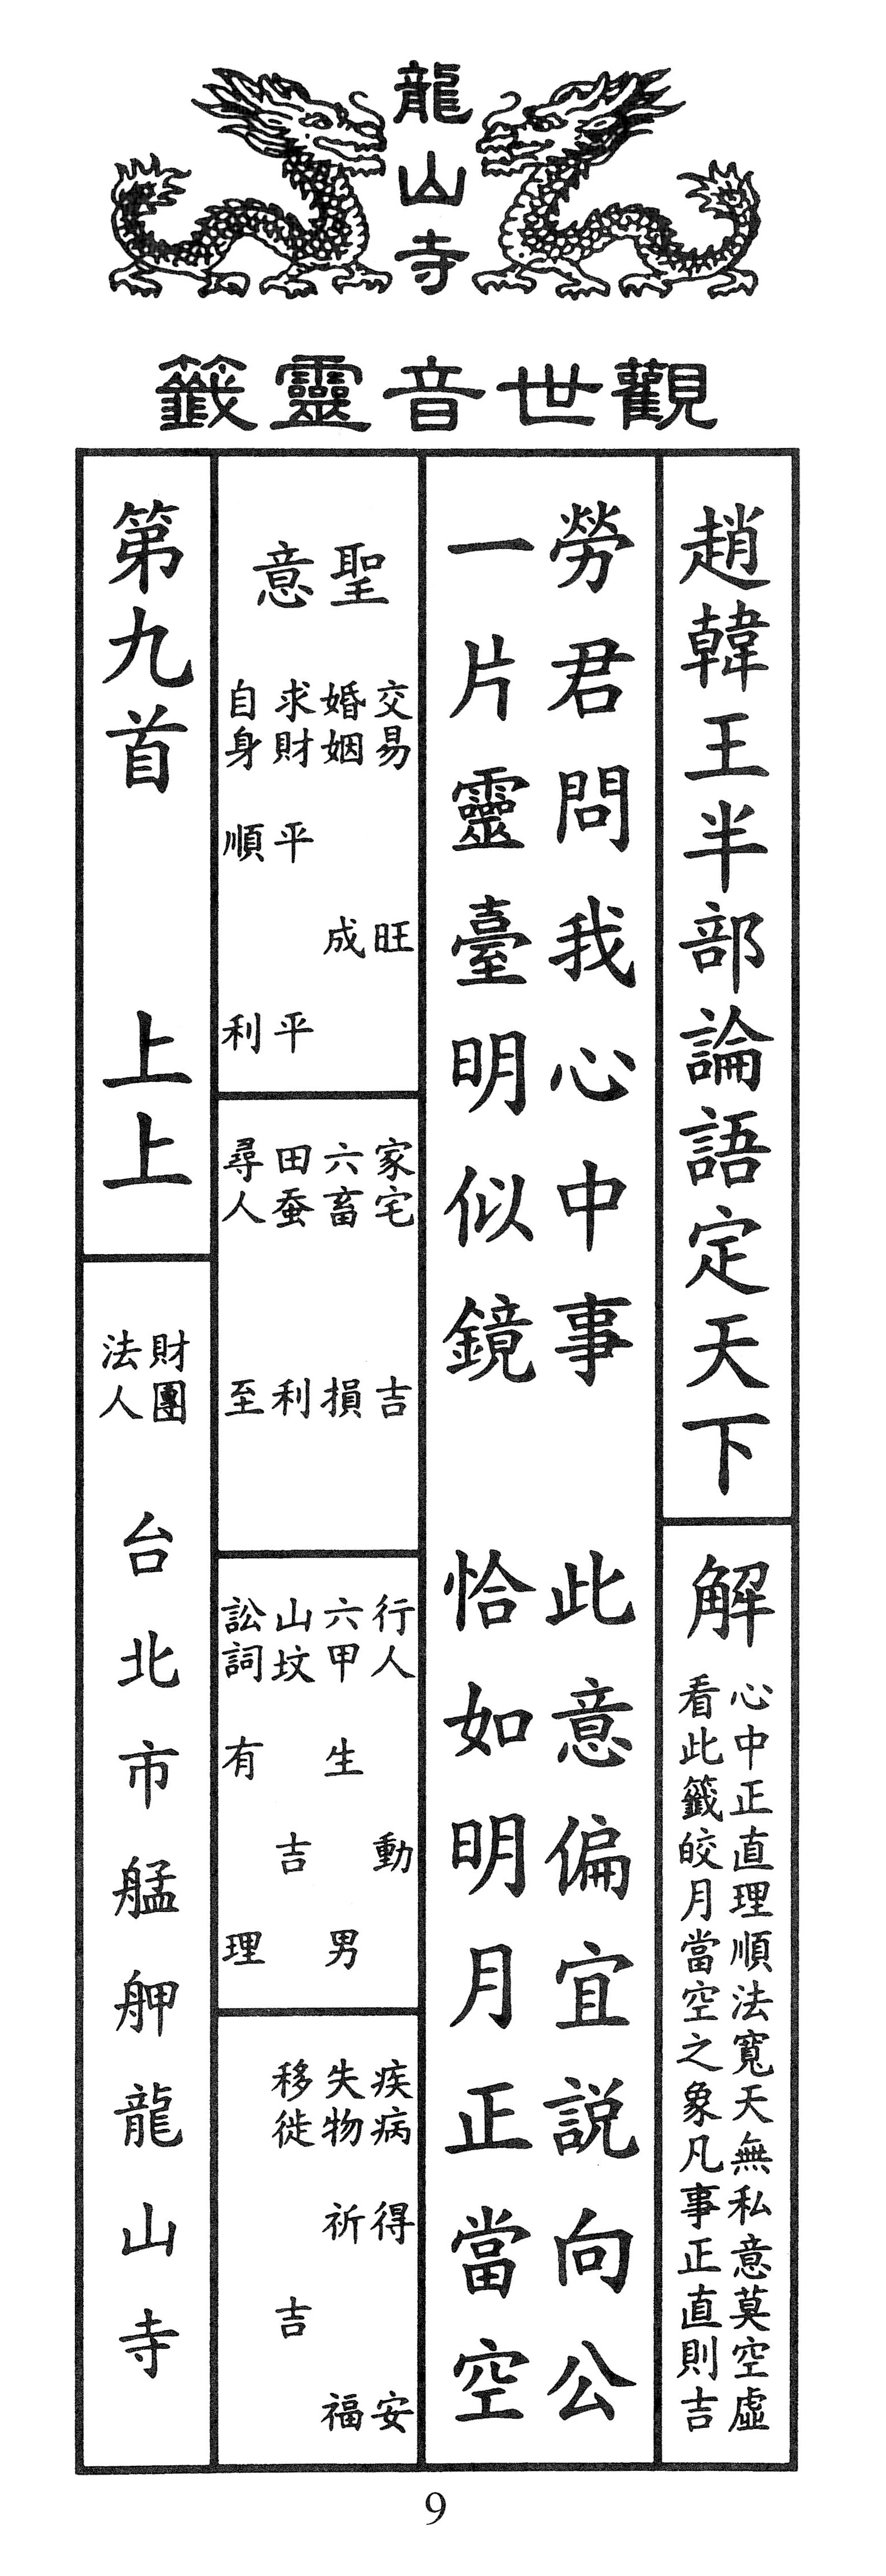 龍山寺
觀世音靈籤
趙韓王半部論語定天下
解
心中正直理順法寬天無私意莫空虛
看此籤皎月當空之象凡事正直則吉
勞君問我心中事 此意偏宜説向公
一片靈臺明似鏡 恰如明月正當空
聖意
交易 旺
婚姻 成
求財 平平
自身 順利
家宅 吉
六畜 損
田蚕 利
尋人 至
行人 動
六甲 生男
山坟 吉
訟詞 有理
疾病 得安
失物 祈福
移徙 吉
第九首 上上
財團法人 台北市艋舺龍山寺
9